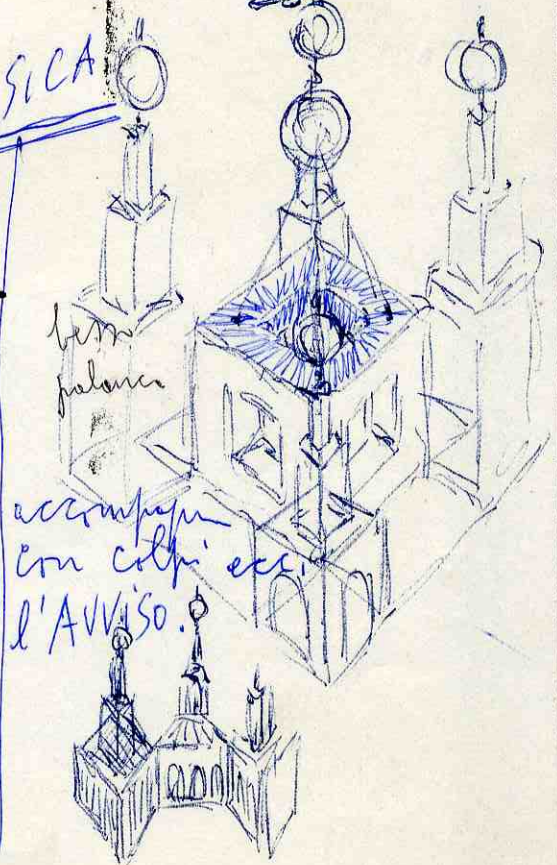 SICA
palanca
accompagna
con colpi ecc.
l'AVVISO.